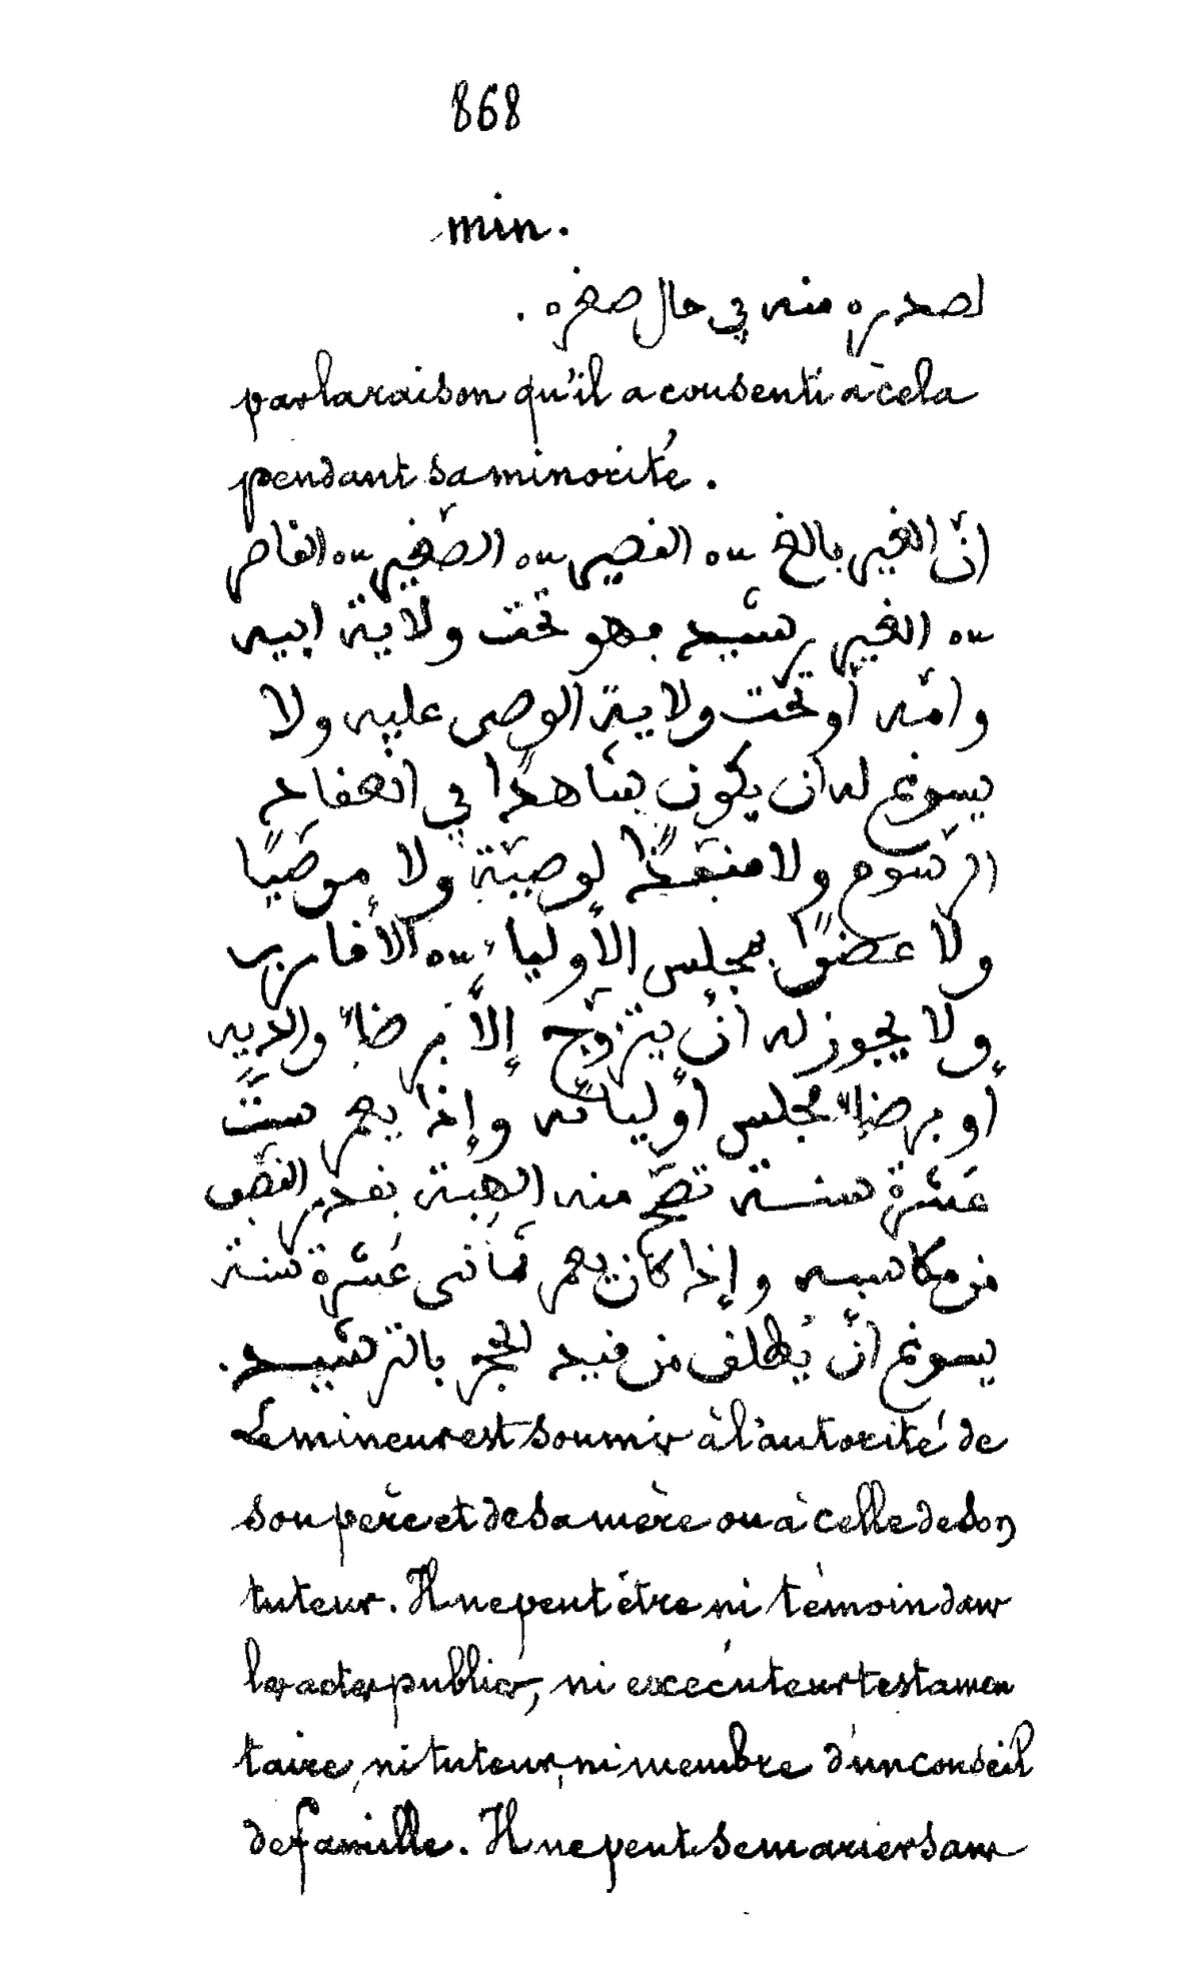 868
min.
لصدره منه في حال صغره .
par la raison qu'il a consenti à cela
pendant sa minorité.
انّ الغير بالغ ــه القصير ــه الصّغير ــه القاصر
ــه الغير رشيد فهو تحت ولاية ابيه
وامّه أو تحت ولاية الوصى عليه ولا
يسوغ له أن يكون شاهدًا في انعقاد
الرّسوم ولا منفّذًا لوصيّة ولا موصّيًا
ولا عضوًا بمجلس الأولياء ــه الأقارب
ولا يجوز له أن يتزوّج إلّا برضاء والديه
أو برضاء مجلس أوليائه وإذا بعمر ستّ
عشرة سنة تصحّ منه الهبة بقدر النّصف
من مكاسبه وإذا كان بعمر ثمانى عشرة سنة
يسوغ أن يُطلق من قيد الحجر بالترشيد.
Le mineur est soumis à l'autorité de
son père et de sa mère ou à celle de son
tuteur. Il ne peut être ni témoin dans
les actes publics, ni exécuteur testamen
taire, ni tuteur, ni membre d'un conseil
de famille. Il ne peut se marier sans